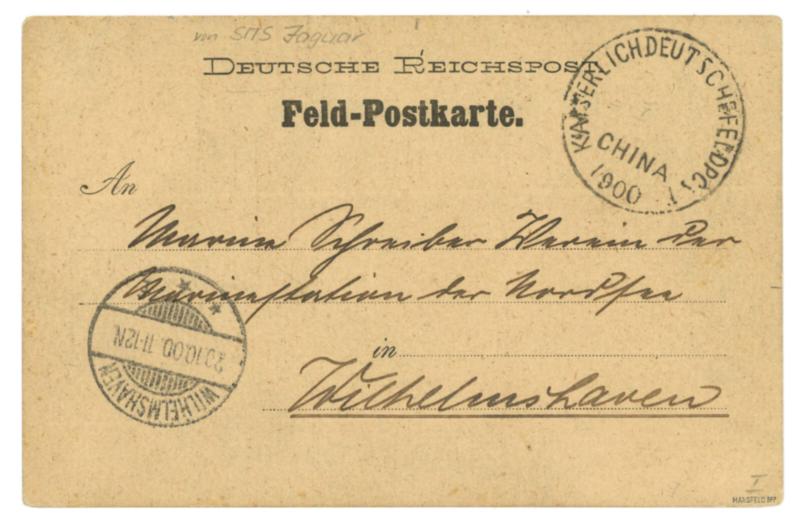 von SMS Jaguar
DEUTSCHE REICHSPOST
Feld-Postkarte.
KAISERLICH DEUTSCHE FELDPOST
CHINA
1900
An
Marine Schreiber Verein der
Marinestation der Nordsee
in
Wilhelmshaven
WILHELMSHAVEN
20.10.00. 11-12N.
I
MANSFELD BPP